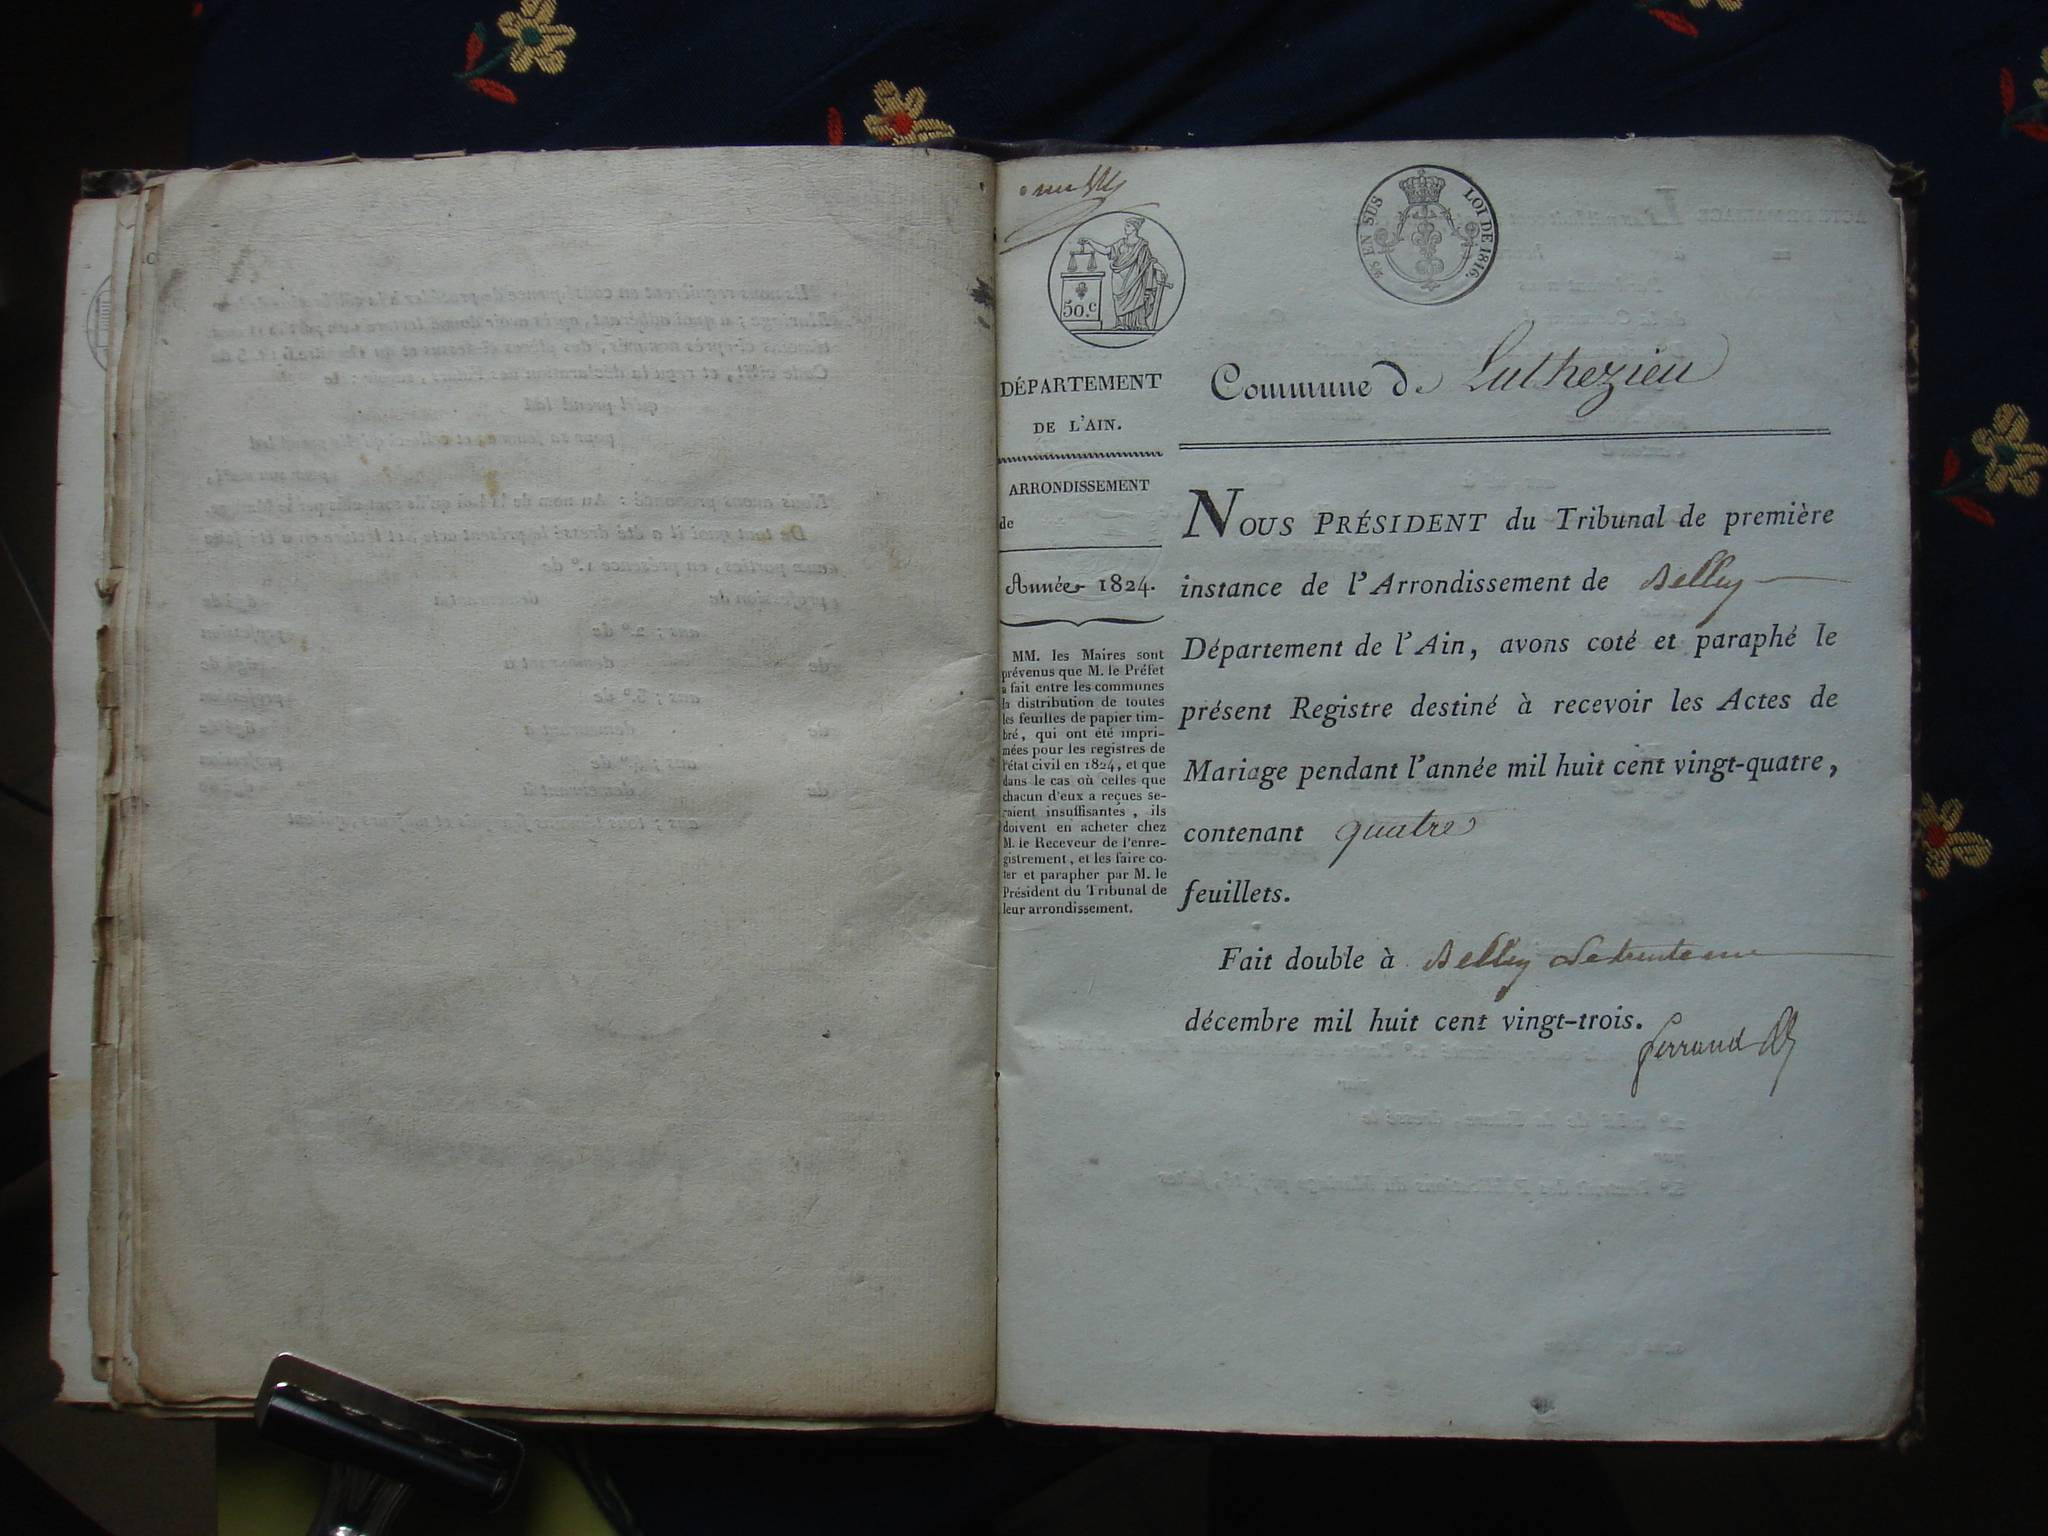 25 EN SUS
LOI DE 1816.
50.c
DÉPARTEMENT
DE L'AIN.
ARRONDISSEMENT
de
Année 1824.
MM. les Maires sont
prévenus que M. le Préfet
a fait entre les communes
la distribution de toutes
les feuilles de papier tim-
bré, qui ont été impri-
mées pour les registres de
l'état civil en 1824, et que
dans le cas où celles que
chacun d'eux a reçues se-
raient insuffisantes, ils
doivent en acheter chez
M. le Receveur de l'enre-
gistrement, et les faire co-
ter et parapher par M. le
Président du Tribunal de
leur arrondissement.
Commune de Luthezieu
NOUS PRÉSIDENT du Tribunal de première
instance de l'Arrondissement de Belley
Département de l'Ain, avons coté et paraphé le
présent Registre destiné à recevoir les Actes de
Mariage pendant l'année mil huit cent vingt-quatre,
contenant quatre
feuillets.
Fait double à Belley le trente un
décembre mil huit cent vingt-trois.